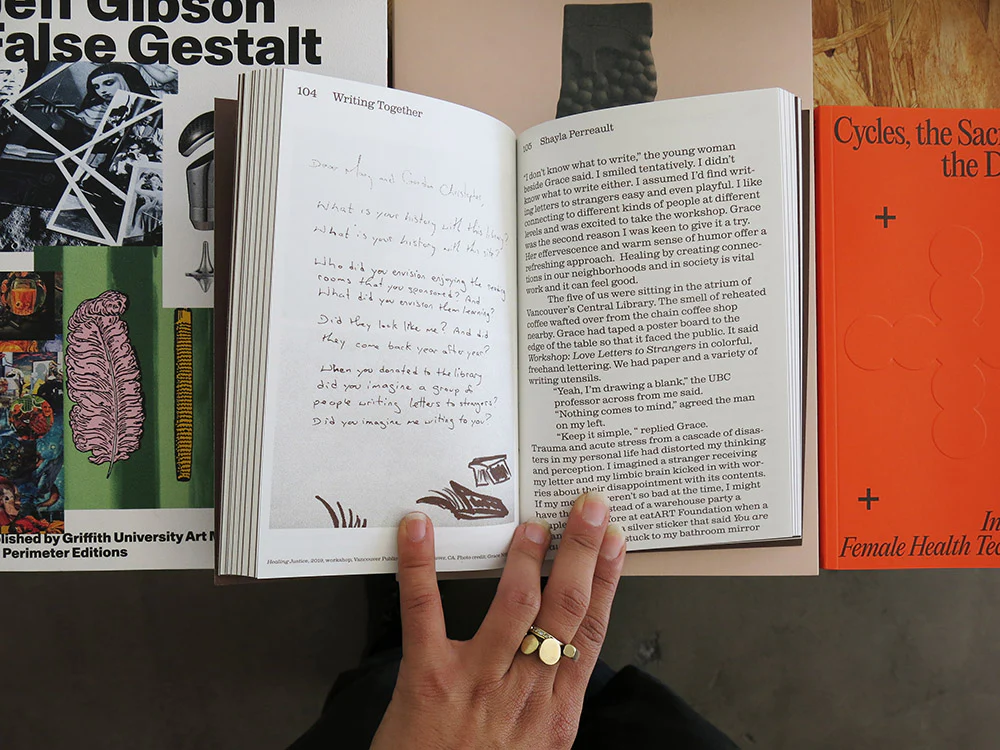 Gibson
False Gestalt
lished by Griffith University Art M
Perimeter Editions
104 Writing Together
Dear Mary and Gordon Christopher,
What is your history with this library?
What is your history with this city?
Who did you envision enjoying the reading
rooms that you sponsored? And
What did you envision them learning?
Did they look like me? And did
they come back year after year?
When you donated to the library
did you imagine a group of
people writing letters to strangers?
Did you imagine me writing to you?
Healing Justice, 2019, workshop, Vancouver CA. Photo credit: Grace
105 Shayla Perreault
"I don't know what to write," the young woman
beside Grace said. I smiled tentatively. I didn't
know what to write either. I assumed I'd find writ-
ing letters to strangers easy and even playful. I like
connecting to different kinds of people at different
levels and was excited to take the workshop. Grace
was the second reason I was keen to give it a try.
Her effervescence and warm sense of humor offer a
refreshing approach. Healing by creating connec-
tions in our neighborhoods and in society is vital
work and it can feel good.
The five of us were sitting in the atrium of
Vancouver's Central Library. The smell of reheated
coffee wafted over from the chain coffee shop
nearby. Grace had taped a poster board to the
edge of the table so that it faced the public. It said
Workshop: Love Letters to Strangers in colorful,
freehand lettering. We had paper and a variety of
writing utensils.
"Yeah, I'm drawing a blank," the UBC
professor across from me said.
"Nothing comes to mind," agreed the man
on my left.
"Keep it simple, " replied Grace.
Trauma and acute stress from a cascade of disas-
ters in my personal life had distorted my thinking
and perception. I imagined a stranger receiving
my letter and my limbic brain kicked in with wor-
ries about their disappointment with its contents.
If my weren't so bad at the time, I might
have instead of a warehouse party a
before at eatART Foundation when a
a silver sticker that said You are
stuck to my bathroom mirror
Cycles, the Sac
the D
In
Female Health Tec